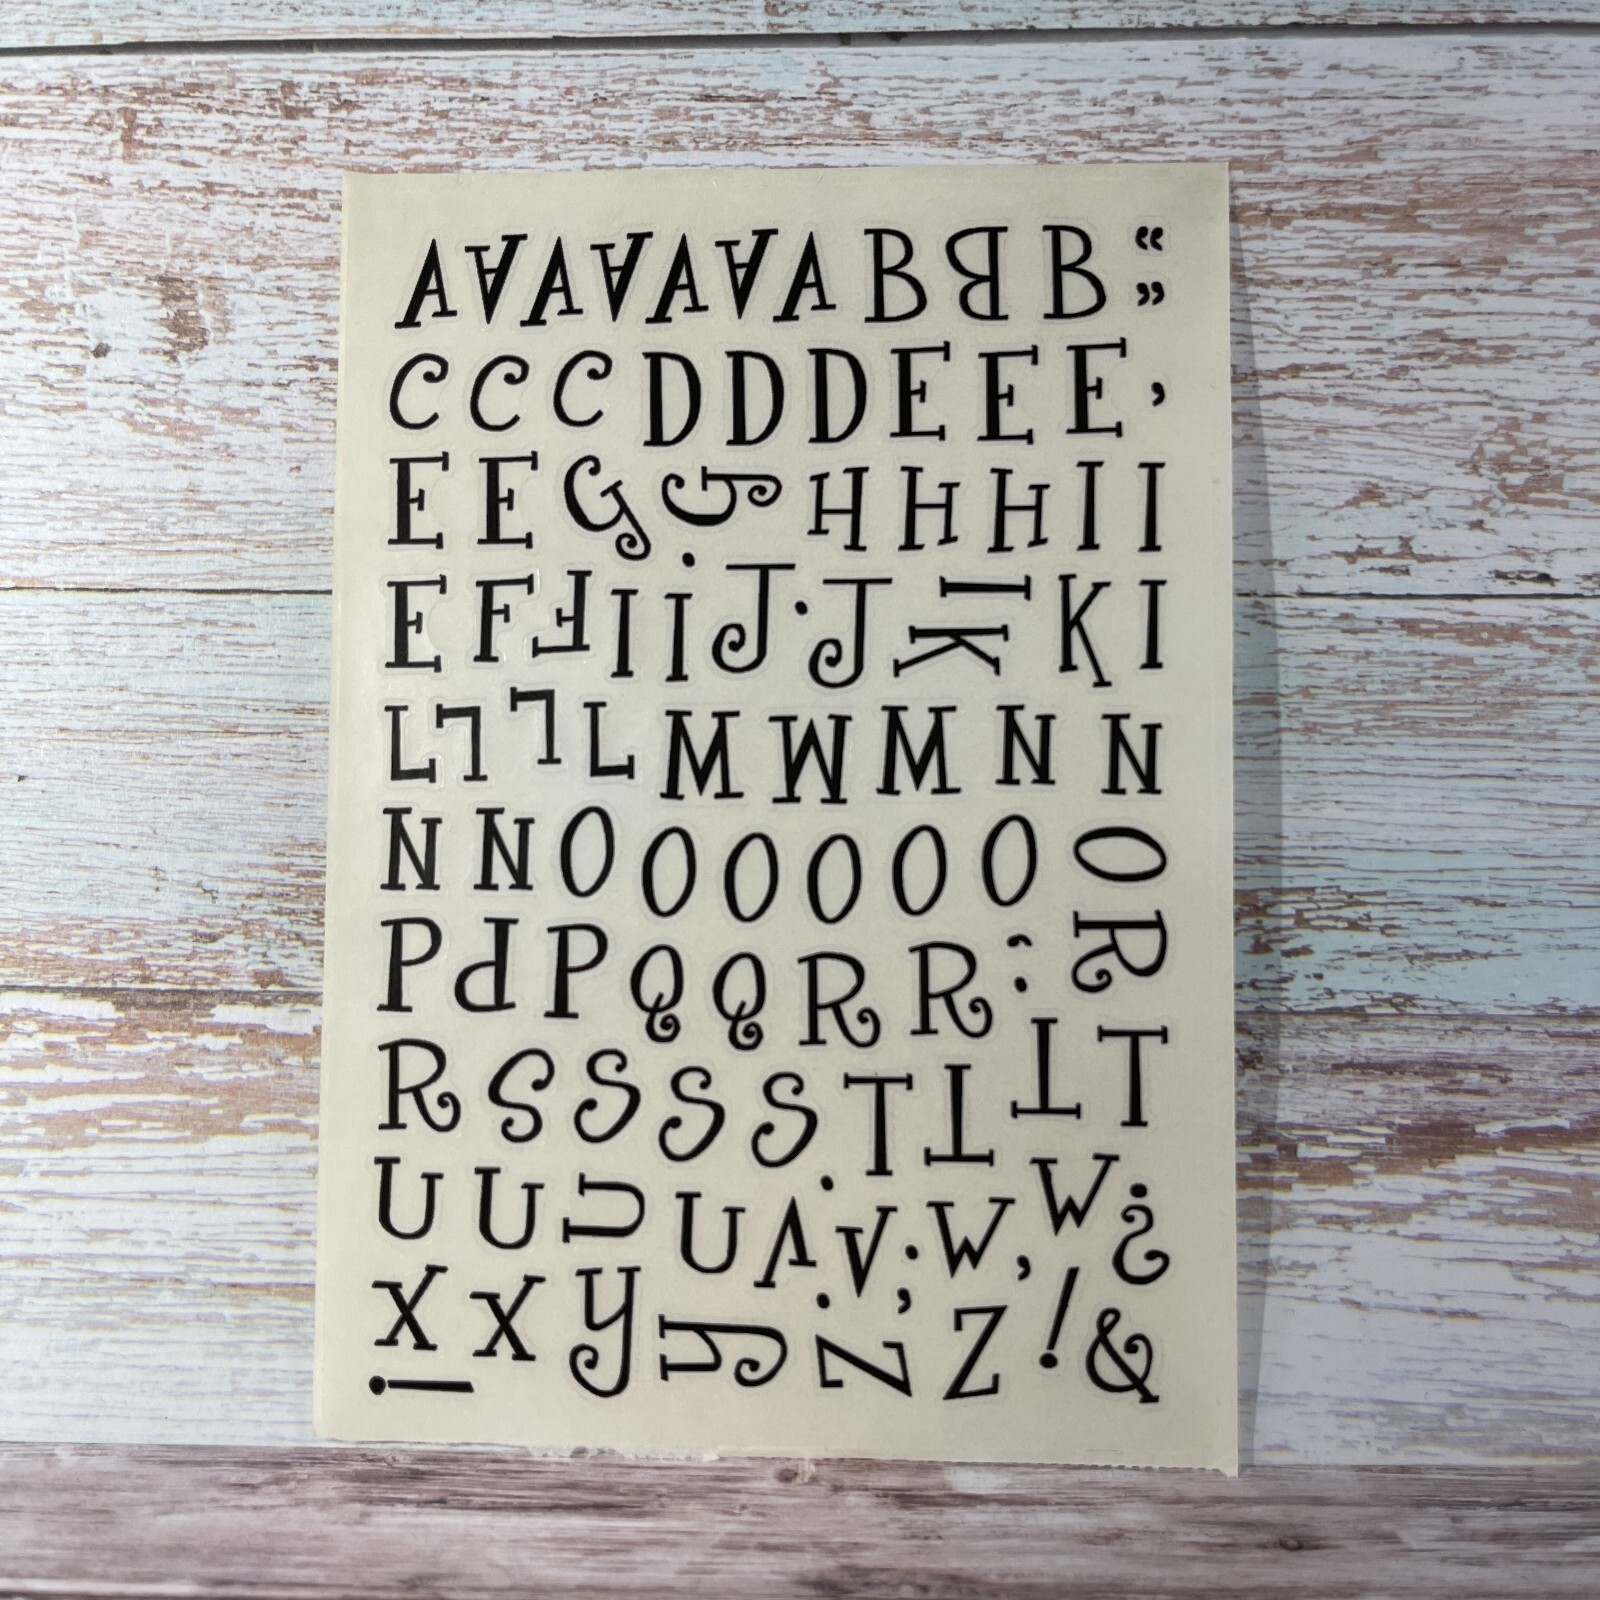 A A A A A A A B B B “
”
C C C D D D E E E ,
E E G G H H H I I
E F F I i J . J I K K I
L L L L M M M N N
N N O O O O O O O
P P P Q Q R R ; R
R S S S S . T T T T
U U U U V . V ; W , W ?
X X Y Y . Z Z ! &
!